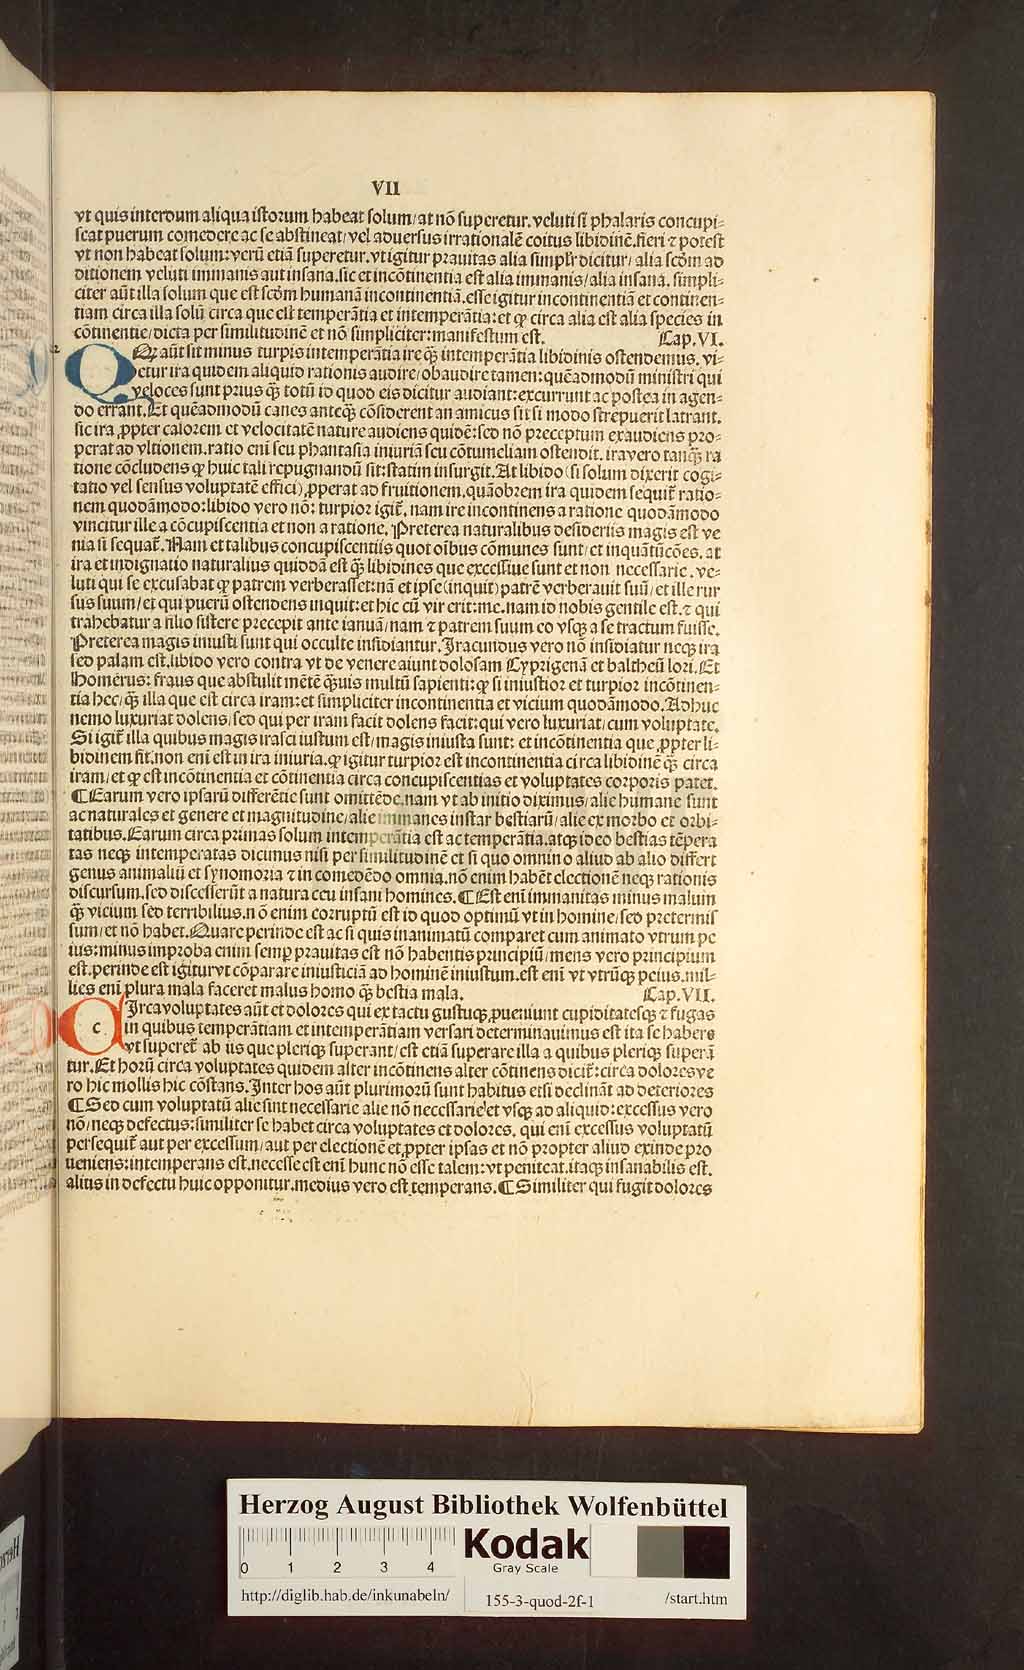 VII
vt quis interdum aliqua istorum habeat solum/at nõ superetur.veluti si phalaris concupi⸗
scat puerum comedere ac se abstineat/vel aduersus irrationalē coitus libidinē.fieri ⁊ potest
vt non habeat solum:verū etiā superetur.vt igitur prauitas alia simplr̄ dicitur/alia scd̄m ad
ditionem veluti immanis aut insana.sic et incõtinentia est alia immanis/alia insana.simpli⸗
citer aūt illa solum que est scd̄m humanā incontinentiā.esse igitur incontinentiā et continen⸗
tiam circa illa solū circa que est temperātia et intemperātia:et ꝙ circa alia est alia species in
cõtinentie/dicta per similitudinē et nõ simpliciter:manifestum est. Cap.VI.
QR aūt sit minus turpis intemperātia ire q̃ꝫ intemperātia libidinis ostendemus.vi⸗
detur ira quidem aliquid rationis audire/obaudire tamen:quēadmodū ministri qui
veloces sunt prius q̃ꝫ totū id quod eis dicitur audiant:excurrunt ac postea in agen⸗
do errant.Et quēadmodū canes anteq̃ꝫ cõsiderent an amicus sit si modo strepuerit latrant.
sic ira ꝓpter calorem et velocitatē nature audiens quidē:sed nõ preceptum exaudiens pro⸗
perat ad vltionem.ratio eni seu phantasia iniuriā seu cõtumeliam ostendit.ira vero tanq̃ꝫ ra
tione cõcludens ꝙ huic tali repugnandū sit:statim insurgit.At libido (si solum dixerit cogi⸗
tatio vel sensus voluptatē effici) ꝓperat ad fruitionem.quāobrem ira quidem sequit̄ ratio⸗
nem quodāmodo:libido vero nõ: turpior igit̄, nam ire incontinens a ratione quodāmodo
vincitur ille a cõcupiscentia et non a ratione. Preterea naturalibus desideriis magis est ve
nia si sequat̄. Nam et talibus concupiscentiis quot oībus cõmunes sunt/et inquātū cões. at
ira et indignatio naturalius quiddā est q̃ꝫ libidines que excessiue sunt et non necessarie. ve⸗
luti qui se excusabat ꝙ patrem verberasset:nā et ipse (inquit) patrē verberauit suū/et ille rur
sus suum/et qui puerū ostendens inquit:et hic cū vir erit:me.nam id nobis gentile est.⁊ qui
trahebatur a filio sistere precepit ante ianuā/nam ⁊ patrem suum eo vsqꝫ a se tractum fuisse.
Preterea magis iniusti sunt qui occulte insidiantur. Iracundus vero nõ insidiatur neqꝫ ira
sed palam est.libido vero contra vt de venere aiunt dolosam Cyprigenā et baltheū lori.Et
Homerus: fraus que abstulit mētē q̃ꝫuis multū sapienti:ꝙ si iniustior et turpior incõtinen⸗
tia hec/q̃ꝫ illa que est circa iram:et simpliciter incontinentia et vicium quodāmodo. Adhuc
nemo luxuriat dolens/sed qui per iram facit dolens facit:qui vero luxuriat/cum voluptate.
Si igit̄ illa quibus magis irasci iustum est/magis iniusta sunt: et incõtinentia que ꝓpter li⸗
bidinem fit.non eni est in ira iniuria.ꝙ igitur turpior est incontinentia circa libidinē q̃ꝫ circa
iram/et ꝙ est incõtinentia et cõtinentia circa concupiscentias et voluptates corporis patet.
¶Earum vero ipsarū differētie sunt omittēde.nam vt ab initio diximus/alie humane sunt
ac naturales et genere et magnitudine/alie immanes instar bestiarū/alie ex morbo et orbi⸗
tatibus.Earum circa primas solum intemperātia est ac temperātia.atqꝫ ideo bestias tēpera
tas neqꝫ intemperatas dicimus nisi per similitudinē et si quo omnino aliud ab alio differt
genus animaliū et synomoria ⁊ in comedēdo omnia.nõ enim habēt electionē neqꝫ rationis
discursum.sed discesserūt a natura ceu insani homines.¶Est eni immanitas minus malum
q̃ꝫ vicium sed terribilius.nõ enim corruptū est id quod optimū vt in homine/sed pretermis
sum/et nõ habet.Quare perinde est ac si quis inanimatū comparet cum animato vtrum pe
ius:minus improba enim semꝑ prauitas est nõ habentis principiū/mens vero principium
est.perinde est igitur vt cõparare iniusticiā ad hominē iniustum.est eni vt vtrūqꝫ peius.mil⸗
lies eni plura mala faceret malus homo q̃ꝫ bestia mala. Cap.VII.
c
CIrca voluptates aūt et dolores qui ex tactu gustuqꝫ ꝓueniunt cupiditatesqꝫ ⁊ fugas
in quibus temperātiam et intemperātiam versari determinauimus est ita se habere
vt superet̄ ab iis que pleriqꝫ superant/est etiā superare illa a quibus pleriqꝫ superā
tur.Et horū circa voluptates quidem alter incõtinens alter cõtinens dicit̄:circa dolores ve
ro hic mollis hic cõstans.Inter hos aūt plurimorū sunt habitus etsi declināt ad deteriores
¶Sed cum voluptatū alie sint necessarie alie nõ necessarie/et vsqꝫ ad aliquid:excessus vero
nõ/neqꝫ defectus:similiter se habet circa voluptates et dolores. qui eni excessus voluptatū
persequit̄ aut per excessum/aut per electionē et ꝓpter ipsas et nõ propter aliud exinde pro
ueniens:intemperans est.necesse est eni hunc nõ esse talem:vt peniteat.itaqꝫ insanabilis est.
alius in defectu huic opponitur.medius vero est temperans.¶Similiter qui fugit dolores
Herzog August Bibliothek Wolfenbüttel
0 1 2 3 4
Kodak
Gray Scale
http://diglib.hab.de/inkunabeln/ 155-3-quod-2f-1 /start.htm